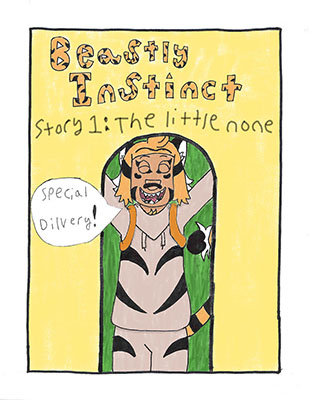 Beastly
Instinct
Story 1: The little none
Special
Dilvery!